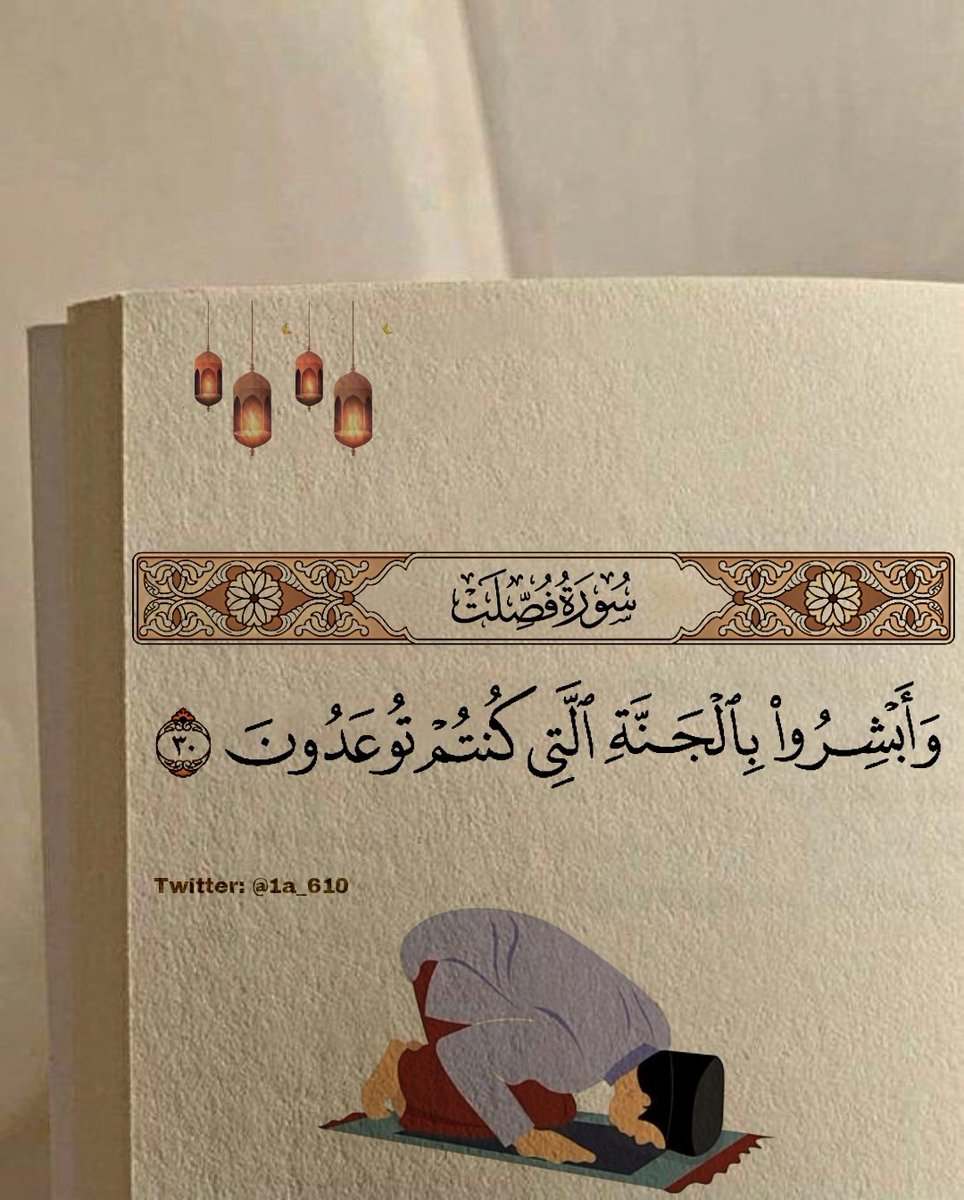 سُورَةُ فُصِّلَتۡ
وَأَبۡشِرُواْ بِٱلۡجَنَّةِ ٱلَّتِي كُنتُمۡ تُوعَدُونَ ٣٠
Twitter: @1a_610